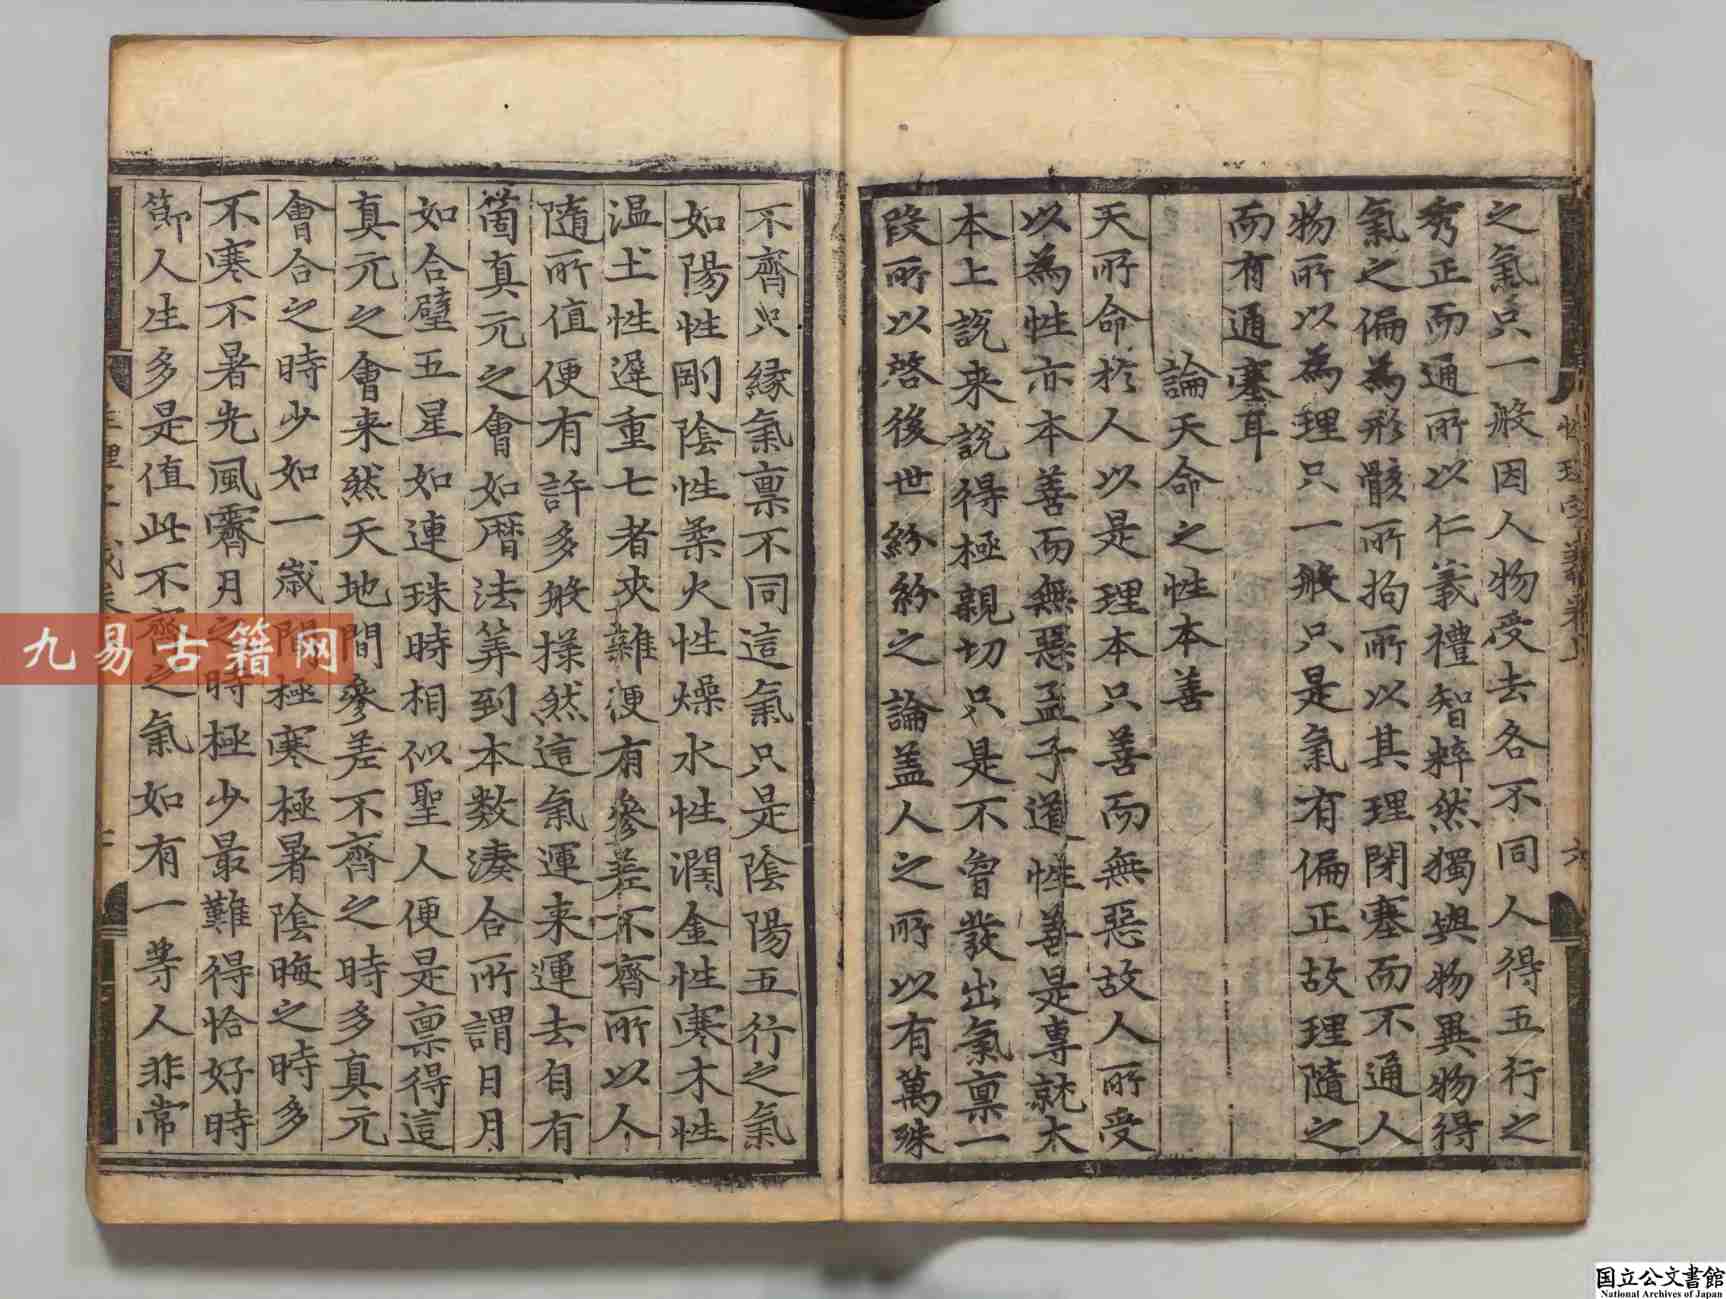 之氣只一般因人物受去各不同人得五行之
秀正而通所以仁義禮智粹然獨與物異物得
氣之偏為形骸所拘所以其理閉塞而不通人
物所以為理只一般只是氣有偏正故理隨之
而有通塞耳
論天命之性本善
天所命於人以是理本只善而無惡故人所受
以為性亦本善而無惡孟子道性善是專就大
本上說来說得極親切只是不曾發出氣稟一
段所以啓後世紛紛之論盖人之所以有萬殊
不齊只緣氣稟不同這氣只是陰陽五行之氣
如陽性剛陰性柔火性燥水性潤金性寒木性
温土性遲重七者夾雜便有參差不齊所以人
隨所值便有許多般様然這氣運来運去自有
箇真元之會如暦法筭到本數湊合所謂日月
如合璧五星如連珠時相似聖人便是稟得這
真元之會来然天地間參差不齊之時多真元
會合之時少如一歲間極寒極暑陰晦之時多
不寒不暑光風霽月之時極少最難得恰好時
節人生多是值此不齊之氣如有一等人非常
性理字義卷上
六
九易古籍网
国立公文書館
National Archives of Japan